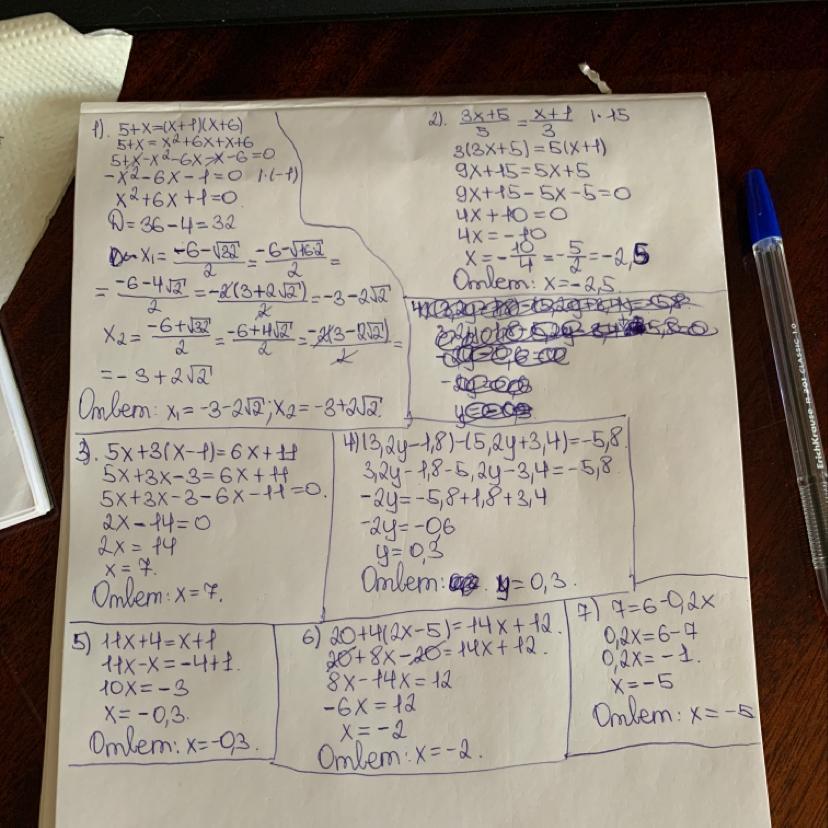 1). 5+x=(x+1)(x+6)
5+x=x²+6x+x+6
5+x-x²-6x-x-6=0
-x²-6x-1=0 |·(-1)
x²+6x+1=0.
D=36-4=32
x₁=(-6-√32)/2=(-6-√16·2)/2=
=(-6-4√2)/2=(-2(3+2√2))/2=-3-2√2
x₂=(-6+√32)/2=(-6+4√2)/2=(-2(3-2√2))/2=
=-3+2√2
Ответ: x₁=-3-2√2; x₂=-3+2√2
2). (3x+5)/5=(x+1)/3 |·15
3(3x+5)=5(x+1)
9x+15=5x+5
9x+15-5x-5=0
4x+10=0
4x=-10
x=-10/4=-5/2=-2,5
Ответ: x=-2,5.
3). 5x+3(x-1)=6x+11
5x+3x-3=6x+11
5x+3x-3-6x-11=0.
2x-14=0
2x=14
x=7.
Ответ: x=7.
4)(3,2y-1,8)-(5,2y+3,4)=-5,8.
3,2y-1,8-5,2y-3,4=-5,8
-2y=-5,8+1,8+3,4
-2y=-0,6
y=0,3
Ответ: y=0,3.
5) 11x+4=x+1
11x-x=-4+1.
10x=-3
x=-0,3.
Ответ: x=-0,3.
6) 20+4(2x-5)=14x+12.
20+8x-20=14x+12.
8x-14x=12
-6x=12
x=-2
Ответ: x=-2.
7) 7=6-0,2x
0,2x=6-7
0,2x=-1.
x=-5
Ответ: x=-5
ErichKrause R-301 CLASSIC 1.0